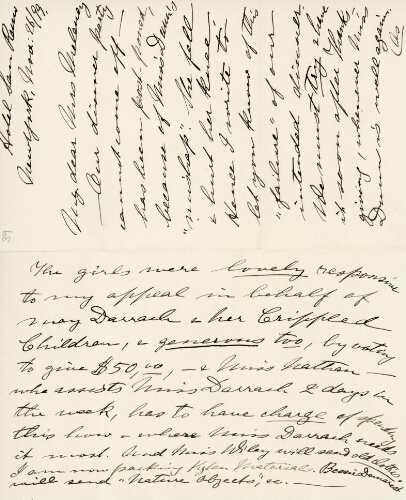 Hotel San Remo
New York, Nov: 21/99.
My dear Mrs
Our dinner party
cannot come off —
has been post poned,
because of Miss Dunn's
"mishap." She fell
& hurt her knee.
Hence I write to
let you know of this
"failure" of our
intended dinner.
We must try & have
it soon after Thanks-
giving, whenever Miss
Dunn is well again.
The girls were lovely responsive
to my appeal in behalf of
May Darrach & her Crippled
Children, & generous too, by voting
to give $50.00, — & Miss Nathan —
who assists Miss Darrach 2 days in
the week, has to have charge of spending
this how & where Miss Darrach needs
it most. And Miss Wiley will send old clothes.
I am now packing Material. Bessie
will send "nature objects", &c —
39